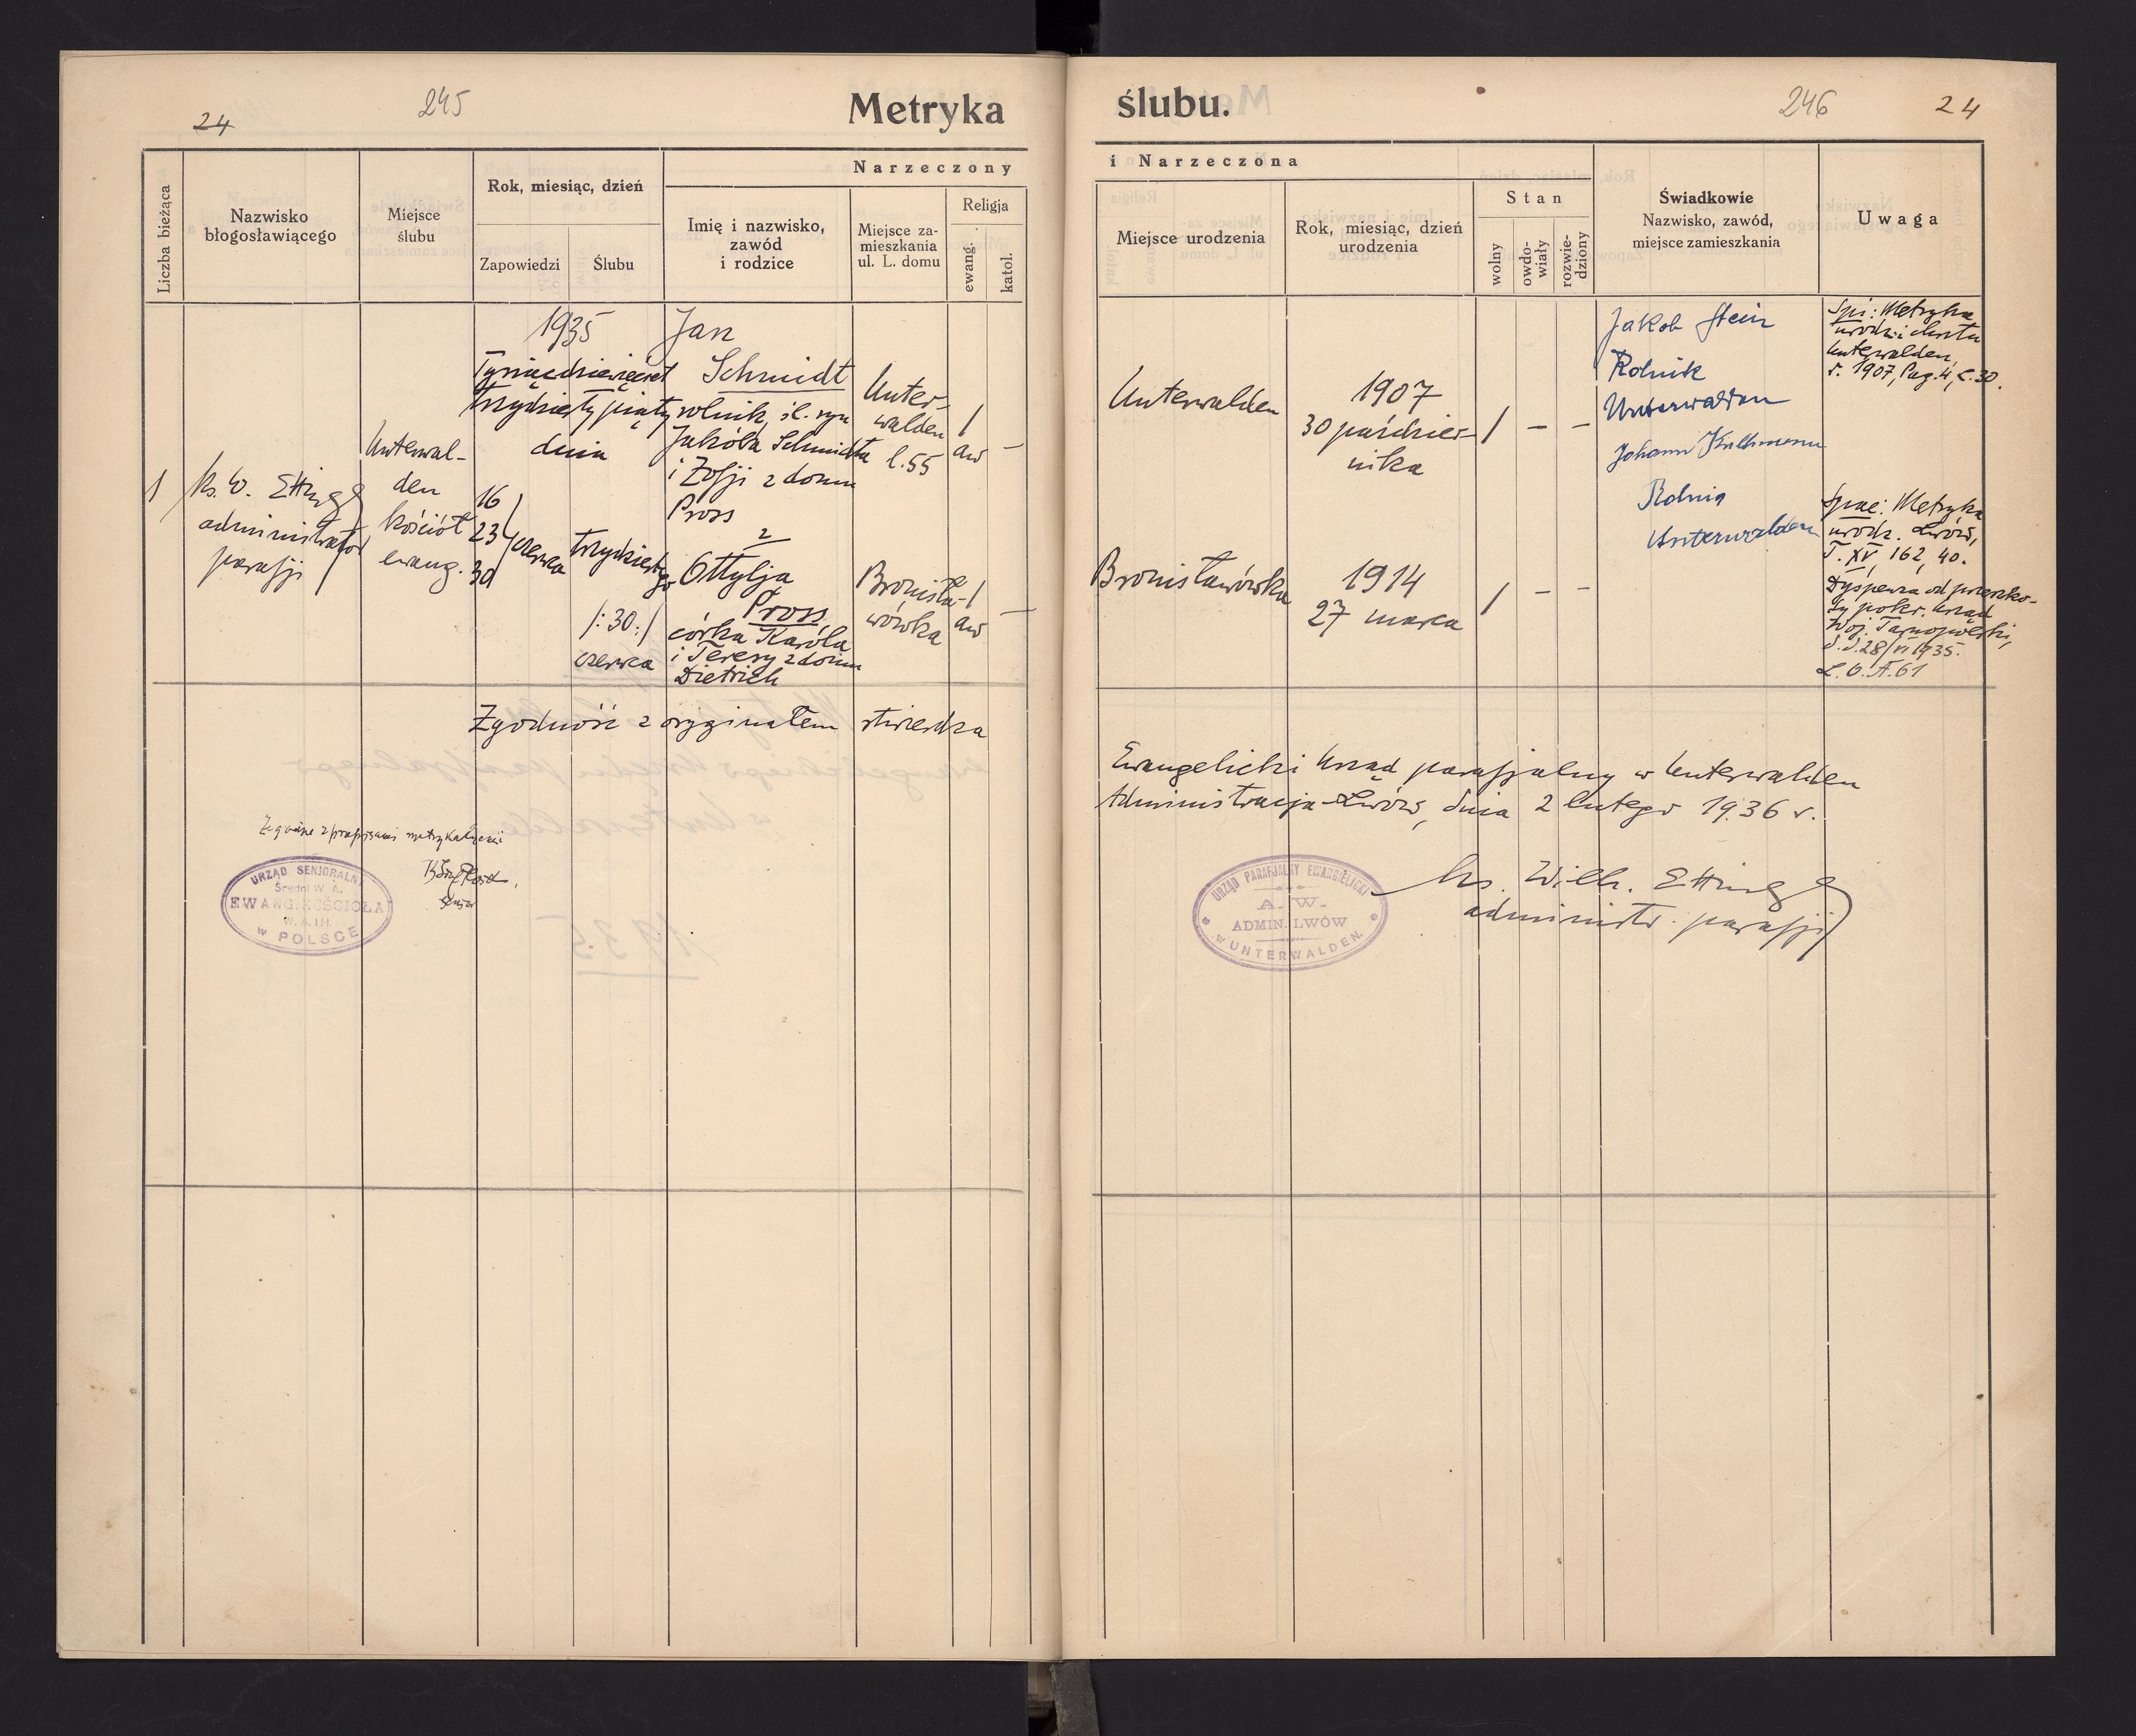 24
245
Metryka
Liczba bieżąca
Nazwisko
błogosławiącego
Miejsce
ślubu
Rok, miesiąc, dzień
Zapowiedzi
Ślubu
Narzeczony
Imię i nazwisko,
zawód
i rodzice
Miejsce za-
mieszkania
ul. L. domu
Religja
ewang.
katol.
1
ks. W. Etting
administrator
parafji
Unterwal-
den
kościół
ewang.
1935
Tysiącdziewięćset
trzydziesty piąty
dnia
16
23
30
czerwca
trzydziest
go
/:30:/
czerwca
Jan
Schmidt
rolnik, śl. syn
Jakóba Schmidta
i Zofji z domu
Pross
z
Ottylja
Pross,
córka Karóla
i Teresy z domu
Dietrich
Unter-
walden
l. 55
Bronisła-
wówka
/
aw
—
/
aw
—
Zgodność z oryginałem stwierdza
Zgodne z przepisami metrykalnymi
URZĄD SENJORALNY
Średni W. A.
EWANG. KOŚCIOŁA
W. A. I H.
w POLSCE
ślubu.
246
24
i Narzeczona
Miejsce urodzenia
Rok, miesiąc, dzień
urodzenia
Stan
wolny
owdo-
wiały
rozwie-
dziony
Świadkowie
Nazwisko, zawód,
miejsce zamieszkania
Uwaga
Unterwalden
1907
30 paździer-
nika
/ – –
Bronisławówka
1914
27 marca
/ – –
Jakob Stein
Rolnik
Unterwalden
Johann
Rolnik
Unterwalden
Spi: Metryka
urodz. i chrztu
Unterwalden,
r. 1907, Pag. 4, L. 30.
Metryka
urodz. Lwów,
T. XV, 162, 40.
Dyspenza od przeszko-
dy pokr. Urząd
Woj. Tarnopolski,
d. d. 28/VI 1935.
L. O. A. 61
Ewangelicki Urząd parafjalny w Unterwalden
Administracja-Lwów, dnia 2 lutego 1936 r.
URZĄD PARAFJALNY EWANGIELICKI
A. W.
ADMIN. LWÓW
w UNTERWALDEN.
ks. Wilh. Etting
administr. parafji